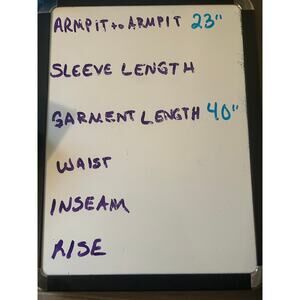 ARMPIT to ARMPIT 23"
SLEEVE LENGTH
GARMENT LENGTH 40"
WAIST
INSEAM
RISE